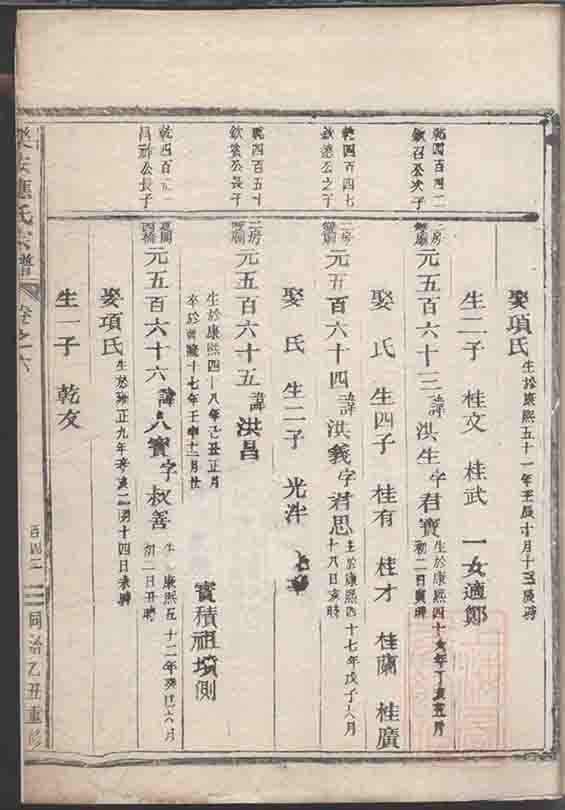 娶項氏 生於康熙五十一年壬辰十月十三辰時
生二子 桂文 桂武 一女適鄭
乾四百四二
欽召公次子
元五百六十三 諱洪生字君寶 生於康熙四十六年丁亥五月
初二日寅時
娶 氏 生四子 桂有 桂才 桂蘭 桂廣
乾四百四七
欽德公之子
二房
元五百六十四 諱洪義字君思 生於康熙四十七年戊子八月
十八日亥時
娶 氏 生二子 光泮
乾四百五十
欽 公長子
二房
元五百六十五 諱洪昌
生於康熙四十八年己丑正月
卒於乾隆十七年壬申十二月 寶積祖墳側
乾四百
昌 公長子
四橋
元五百六十六 諱八寶字叔善 生 康熙五十二年癸巳六月
初二日丑時
娶項氏 生於雍正九年辛亥二月十四日未時
生一子 乾友
樂安應氏宗譜 卷之六 百四二 同治乙丑重修